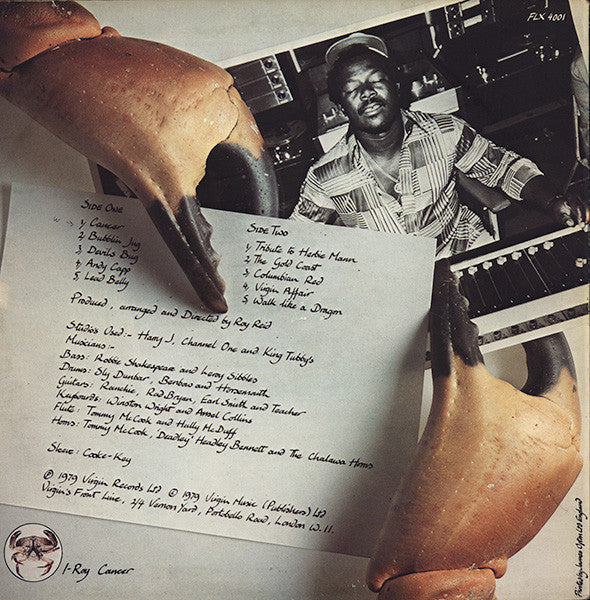 FLX 4001
Side One
1, Cancer
2, Bubblin Jug
3, Devils Bug
4, Andy Capp
5, Lead Belly
Side Two
1, Tribute to Herbie Mann
2, The Gold Coast
3, Columbian Red
4, Virgin Affair
5, Walk like a Dragon
Produced, arranged and Directed by Roy Reid
Studios Used:- Harry J, Channel One and King Tubby's
Musicians:-
Bass: Robbie Shakespeare and Leroy Sibbles
Drums: Sly Dunbar, Benbow and Horsemouth
Guitars: Ranchie, Rad Bryan, Earl Smith and Teacher
Keyboards: Winston Wright and Ansel Collins
Flute: Tommy McCook and Hully McDuff
Horns: Tommy McCook, 'Deadley' Headley Bennett and The Chalawa Horns
Sleeve: Cooke-Key
℗ 1979 Virgin Records Ltd © 1979 Virgin Music (Publishers) Ltd
Virgin's Front Line, 2/4 Vernon Yard, Portobello Road, London W.11.
I-Roy Cancer
Printed by James Upton Ltd England